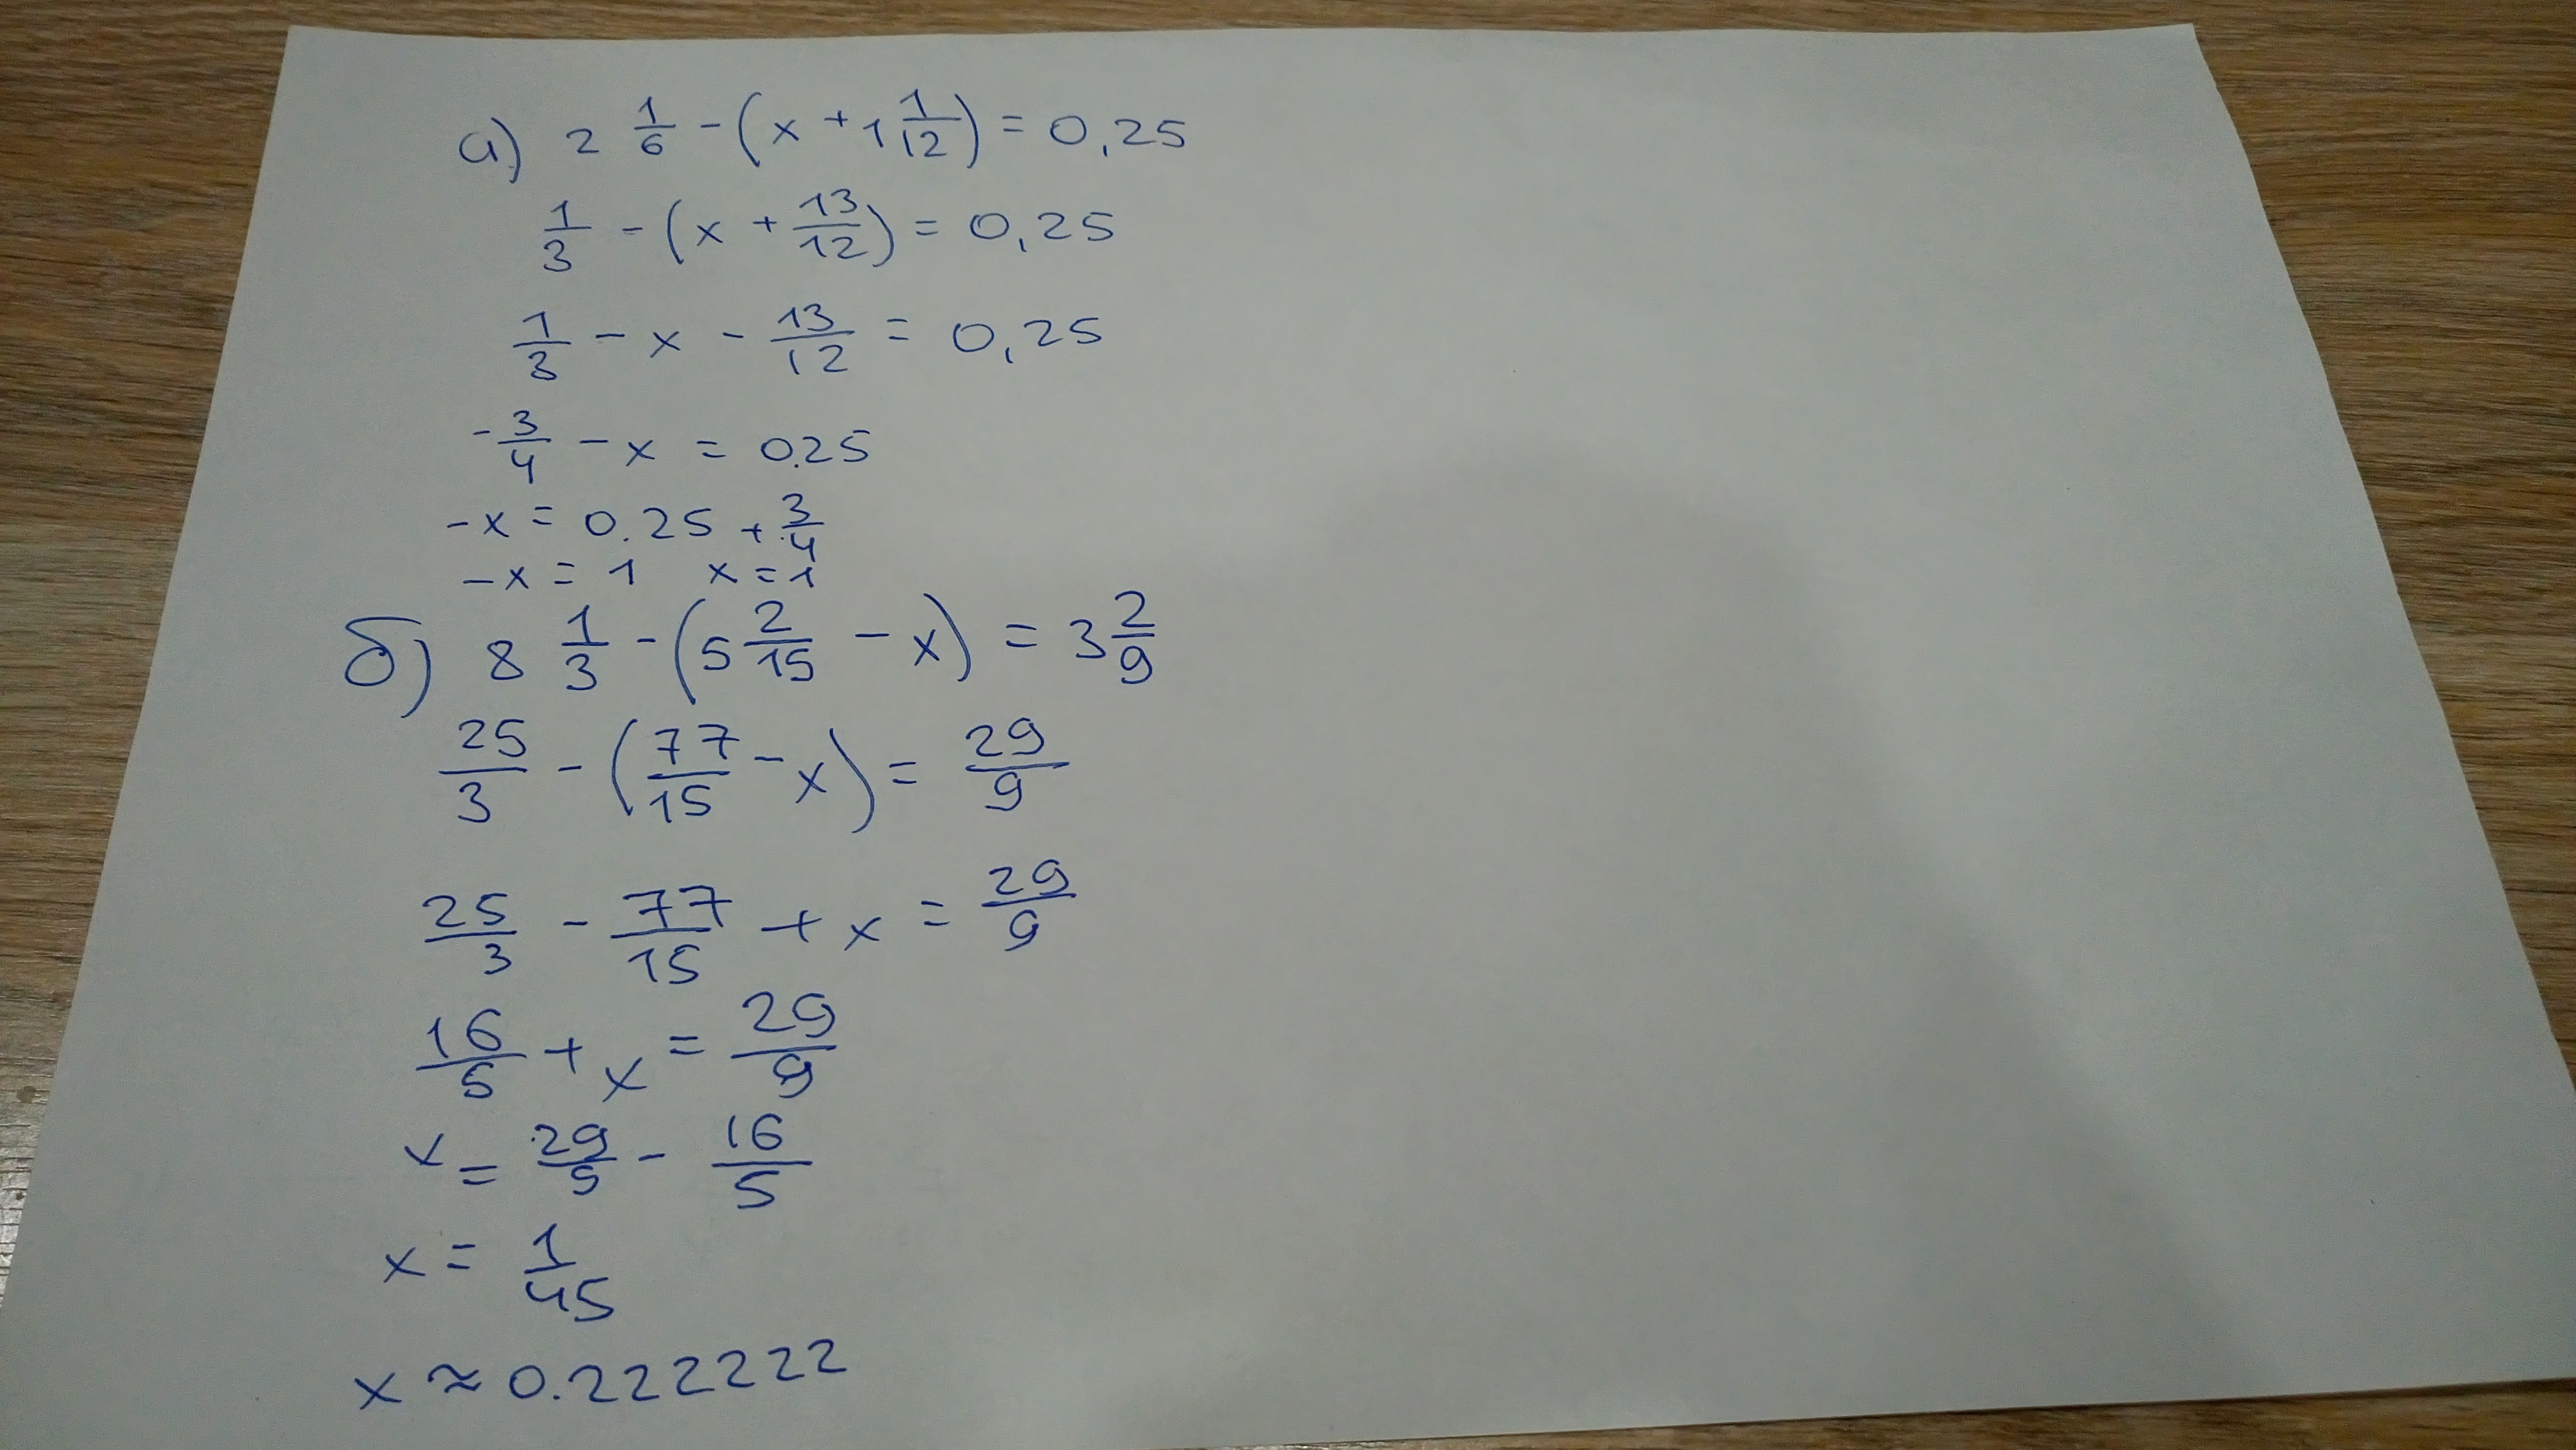 а) 2 1/6 - (x + 1 1/12) = 0,25
1/3 - (x + 13/12) = 0,25
1/3 - x - 13/12 = 0,25
- 3/4 - x = 0.25
-x = 0.25 + 3/4
-x = 1 x = 1
б) 8 1/3 - (5 2/15 - x) = 3 2/9
25/3 - (77/15 - x) = 29/9
25/3 - 77/15 + x = 29/9
16/5 + x = 29/9
x = 29/5 - 16/5
x = 1/45
x ≈ 0.222222